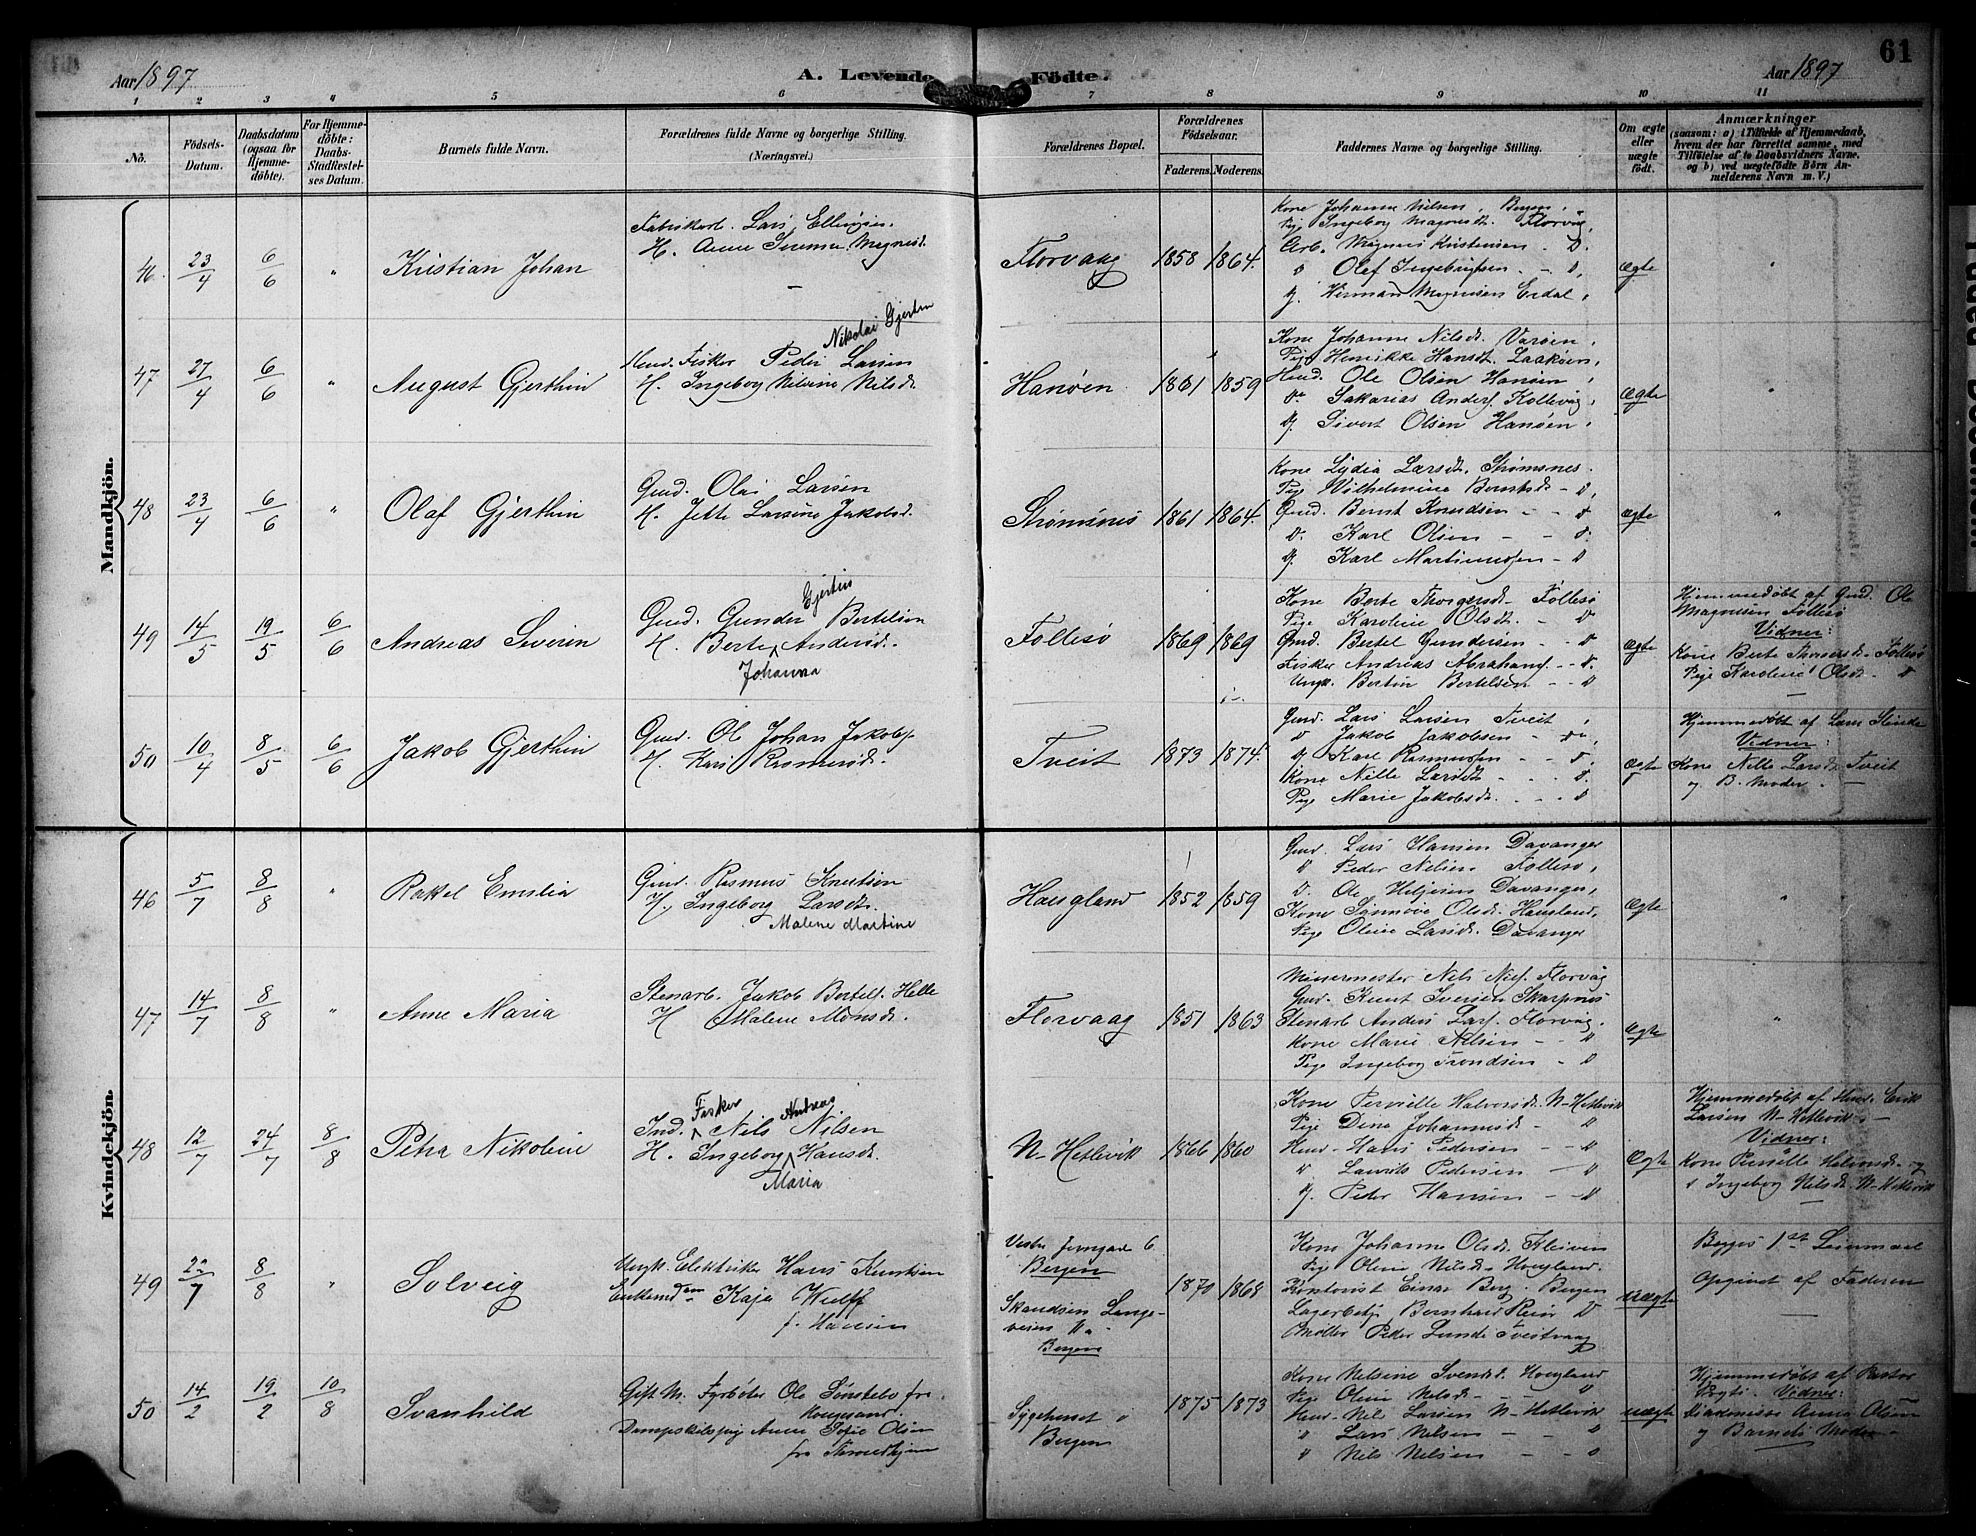 Aar 1897
A. Levende Fødte.
Aar 1897
61
1 2 3 4 5 6 7 8 9 10 11
No.
Fødsels-Datum.
Daabsdatum (ogsaa for Hjemmedöbte).
For Hjemmedöbte: Daabs-Stadfestelses Datum.
Barnets fulde Navn.
Forældrenes fulde Navne og borgerlige Stilling.
(Næringsvei.)
Forældrenes Bopæl.
Forældrenes Födselsaar.
Faderens. Moderens.
Faddernes Navne og borgerlige Stilling.
Om ægte eller uægte födt.
Anmærkninger
(saasom: a) i Tilfælde af Hjemmedaab, hvem der har forrettet samme, med Tilföielse af to Daabsvidners Navne, og b) ved uægtefödte Börn Anmelderens Navn m. V.)
Mandkjön.
46. 23/4 6/6 " Kristian Johan
Fabrikarb. Lars Ellingsen
H. Anne Magnesd.
Florvaag 1858 1864.
Kone Johanne Nilsen, Bergen,
Pige Ingeborg Magnesd. Florvåg,
Arb. Magnus Kristensen - D.
" Olaf Ingebrigtsen - - D.
Herman Magnusen Erdal,
Ægte "
47 27/4 6/6 " August Gjerthin
Nikolai Gjertin
Fisker Peder Larsen
H. Ingeborg Nilsine Nilsd.
Hanøen 1861 1859
Kone Johanne Nilsd.
Pige Henrikke Hansd.
Ole Olsen Hansen
Sakarias Anders. Kollevåg,
Sivert Olsen Hanøen,
Ægte "
48 23/4 6/6 " Olaf Gjerthin
Gmd. Olai Larsen
H. Jette Larsine Jakobsd.
Strømsnes 1861 1864.
Kone Lydia Larsdt. Strømsnes.
Pige Wilhelmine Berntsd. - D.
Gmd. Bernt Knudsen - - D
D. Karl Olsen - - D.
Karl Martinussen - D
Ægte "
49 14/5 19/5 6/6 Andreas Severin
Gjertin
Gmd. Gunder Bertelsen
H. Berte Andersd.
Johanna
Follesø 1869 1869
Kone Berte Thorgersd. Follesø
Pige Karoline Olsd. - D
Gmd. Bertel Gundersen - D
Fisker Andreas Abrahams. - - D.
Ungk. Bertin Bertelsen - - D
Ægte
Hjemmedøbt af Gmd. Ole
Magnusen Follesø
Vidner:
Kone Berte Thorgersd. Follesø
Pige Karoline Olsd. - D
50 10/4 8/5 6/6 Jakob Gjerthin
Gmd. Ole Johan Jakobs.
H. Kari Rasmusd.
Tveit 1873 1874.
Gmd. Lars Larsen Tveit,
D Jakob Jakobsen
Karl Rasmussen - - D.
Kone Nille Larsdt. - - D.
Pige Marie Jakobsd. - - - D
Ægte
Hjemmedøbt af
Vidner:
Kone Nille Larsdt. Tveit
og B. Moder. -
Kvindekjön.
46 5/7 8/8 " Rakel Emilia
Gmd. Rasmus Knutsen
H. Ingeborg Larsdt.
Malene Martine
Haugland 1852 1859
Gmd. Lars Hansen Davanger
D Peder Nilsen Follesø,
D. Ole Heljesen Davanger,
Kone Synnøve Olsdt. Haugland,
Pige Oline Larsdt. Davanger
Ægte "
47 14/7 8/8 " Anne Maria
Stenarb. Jakob Bertels. Helle
H. Malene Monsdt.
Florvaag 1851 1863
Minermester Nils Nils. Florvåg
Gmd. Knut Iversen Skarpnes
Stenarb Anders Lars. Florvåg.
Kone Marie Nilsen - - D
Pige Ingeborg Trondsen - D
Ægte "
48 12/7 24/7 8/8 Petra Nikoline
Fisker Andreas
Ind. Nils Nilsen
H. Ingeborg Hansdt.
Maria
N-Hetlevik 1866 1860
Kone Pernille Halvorsd. N-Hetlevik
Pige Dina Johannesd. - D
Hmd. Hans Pedersen - - D
D Laurits Pedersen - D
Peder Hansen - - D
Ægte
Hjemmedøbt af Hmd. Erik
Larsen N-Hetlevik. -
Vidner:
Kone Pernille Halvorsdt. og
Ingeborg Nilsdt. N-Hetlevik
49 22/7 8/8 " Solveig
Ungk. Elektriker Hans Knutsen
Enkemadam Kaja Wulff
f. Hansen
Bergen
Bergen
1870 1868
Kone Johanne Olsdt. Kleiven
Pige Oline Nilsd. Hougland.
Kontorist Einar Berg, Bergen
Lagerbetj. Bernhard D
Møller Peder Lunde Tveitvaag
uægte
Begges 1ste Leiermaal
Opgivet af Faderen
50 14/2 19/2 10/8 Svanhild
Gift M. Fyrbøter Ole fra
Dampskibspige Anne Sofie Olsen
fra Trondhjem
Sygehuset i
Bergen
1875 1873
Kone Nilsine Svendsd. Hougland
Pige Oline Nilsd. - - D
Hmd. Nils Larsen N-Hetlevik
" Lars Nilsen - - D
" Nils Nilsen - - D
uægte
Hjemmedøbt af Pastor
Vidner:
Diakonisse Anna Olsen
og Barnets Moder -